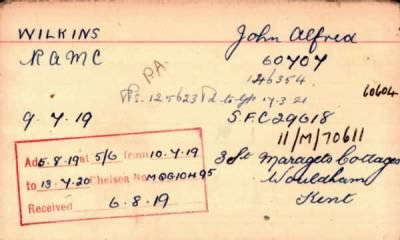 WILKINS John Alfred
RAMC 60707
PA 126354
125623 17.3.21 60604
9.7.19 SFC29618
11/M/70611
Ad 5.8.19 at 5/6 from 10.7.19
to 13.7.20 Chelsea No
Received 6.8.19
3 St Maragets Cottages
Wouldham
Kent